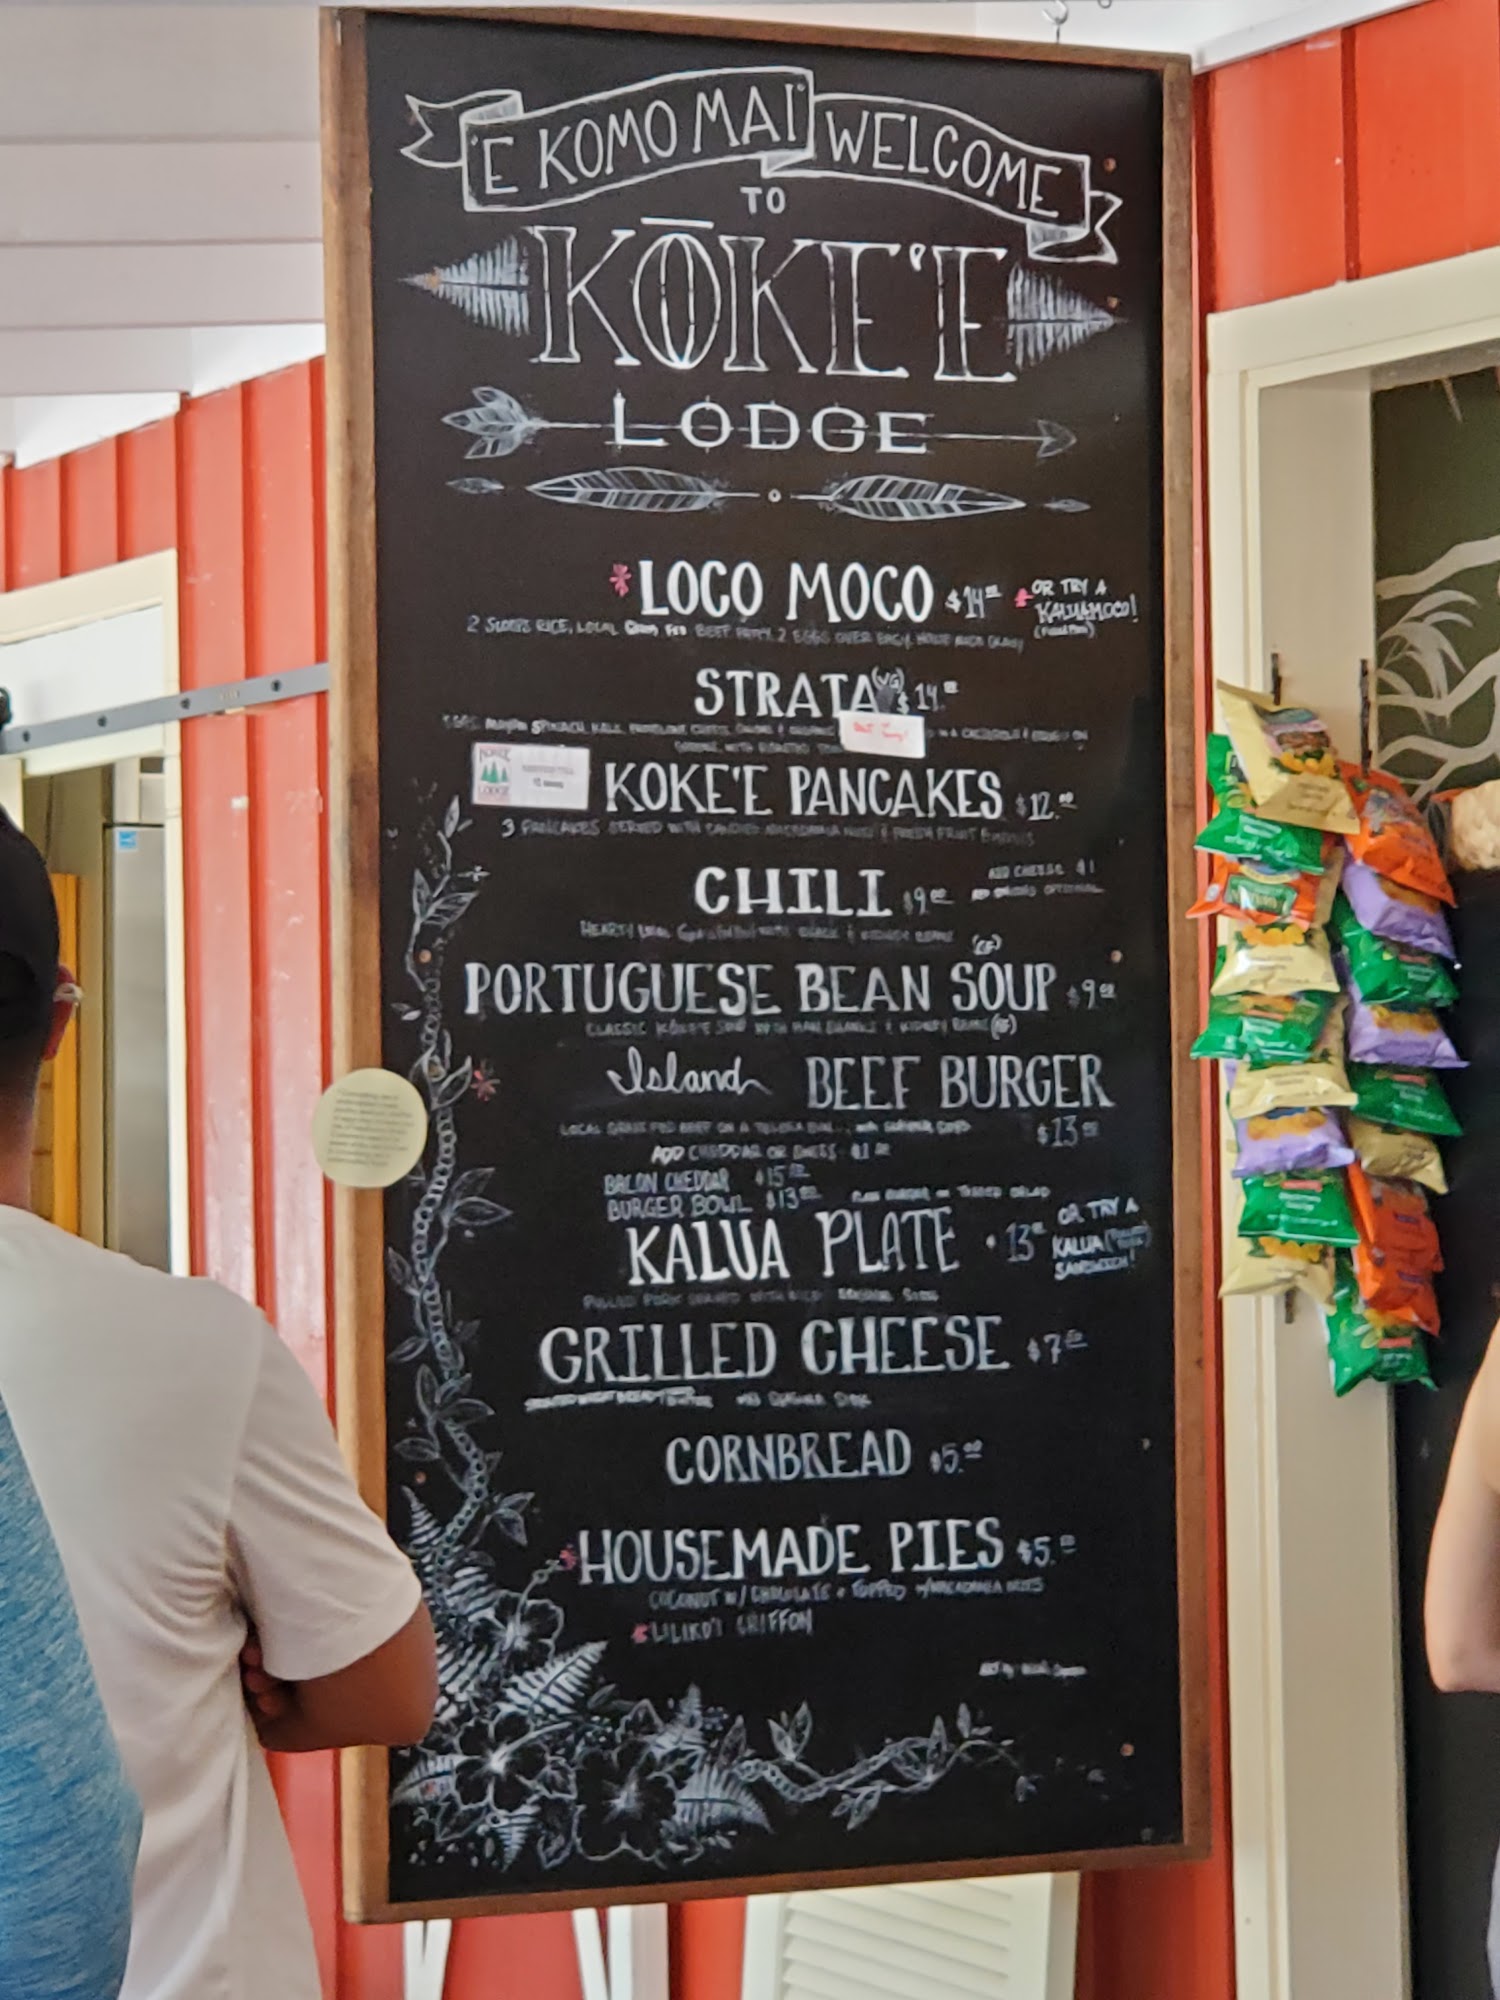 'E KOMO MAI WELCOME
TO
KŌKE'E
LODGE
*LOCO MOCO $14.00 * OR TRY A
KALUAMOCO!
2 SCOOPS RICE, LOCAL GRASS FED BEEF PATTY, 2 EGGS OVER EASY, HOUSE MADE GRAVY
STRATA (VG) $14.00
SPINACH, KALE, PROVOLONE CHEESE, ONIONS & IN A CASSEROLE & SERVED ON
GREENS, WITH ROASTED
KOKEE
LODGE
KOKE'E PANCAKES $12.00
3 PANCAKES SERVED WITH CANDIED MACADAMIA NUTS & FRESH FRUIT
CHILI $9.00
ADD CHEESE $1
ONIONS OPTIONAL
HEARTY LOCAL & KIDNEY BEANS
(GF)
PORTUGUESE BEAN SOUP $9.00
CLASSIC KŌKE'E SOUP WITH HAM SHANKS & KIDNEY BEANS (GF)
Island BEEF BURGER
$13.00
LOCAL GRASS FED BEEF ON A BUN
ADD CHEDDAR OR SWISS $1.00
BACON CHEDDAR $15.00
BURGER BOWL $13.00
KALUA PLATE • 13.00 OR TRY A
KALUA (PULLED PORK)
SANDWICH!
PULLED PORK SERVED WITH RICE SIDE
GRILLED CHEESE $7.50
CORNBREAD $5.00
*HOUSEMADE PIES $5.00
COCONUT W/ CHOCOLATE & TOPPED W/MACADAMIA NUTS
*LILIKO'I CHIFFON